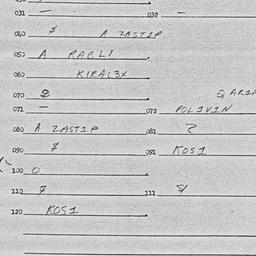 031 — 032 —
040 $ A ZASTIP
050 A RABLI
060 KIRAL3X
070
071 — 072 POLIVIN
080 A ZASTIP 081 Z
090 $ 091 KOS1
100 O
110 $ 111 $
120 KOS1